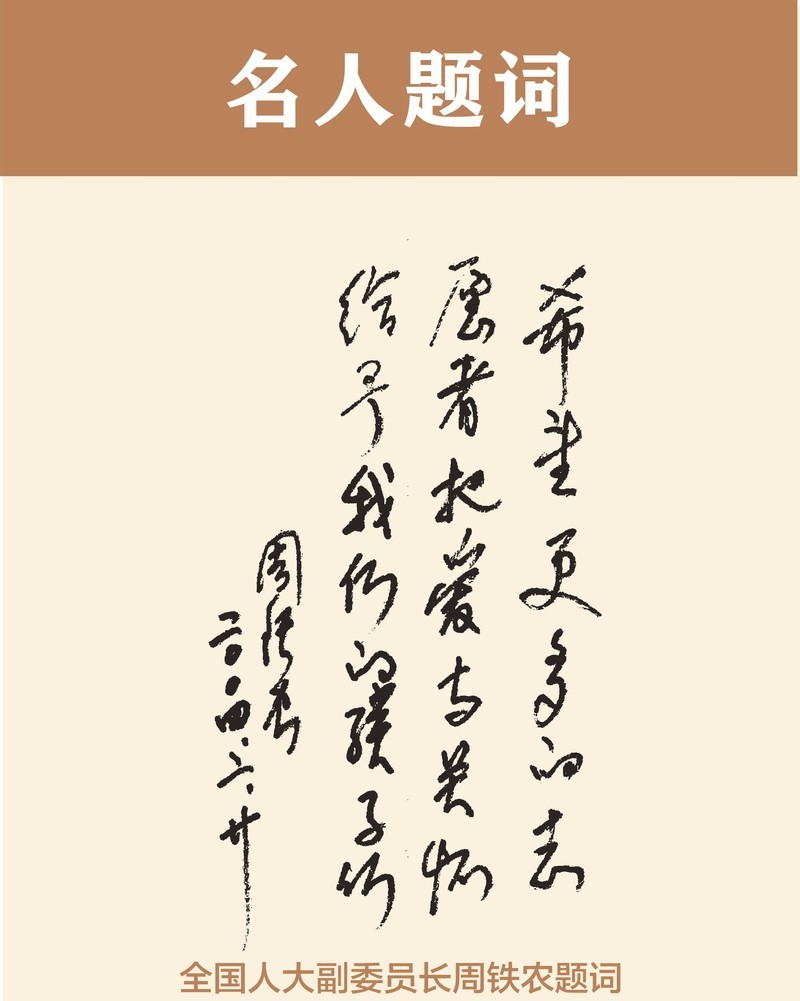 名人题词
希望更多的志
愿者把爱与关怀
给予我们的孩子们
周铁农
二〇一四.六.廿
全国人大副委员长周铁农题词